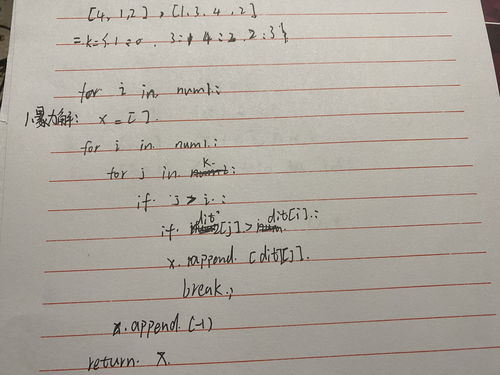 [4, 1, 2], [1, 3, 4, 2]
= k = { 1 : 0, 3 : 1 4 : 2, 2 : 3 }
for i in num1:
1.暴力解: x = [].
for i in num1:
for j in k:
if j > i:
if dit[j] > dit[i]:
x.append [dit[j].
break;
x.append (-1)
return x.